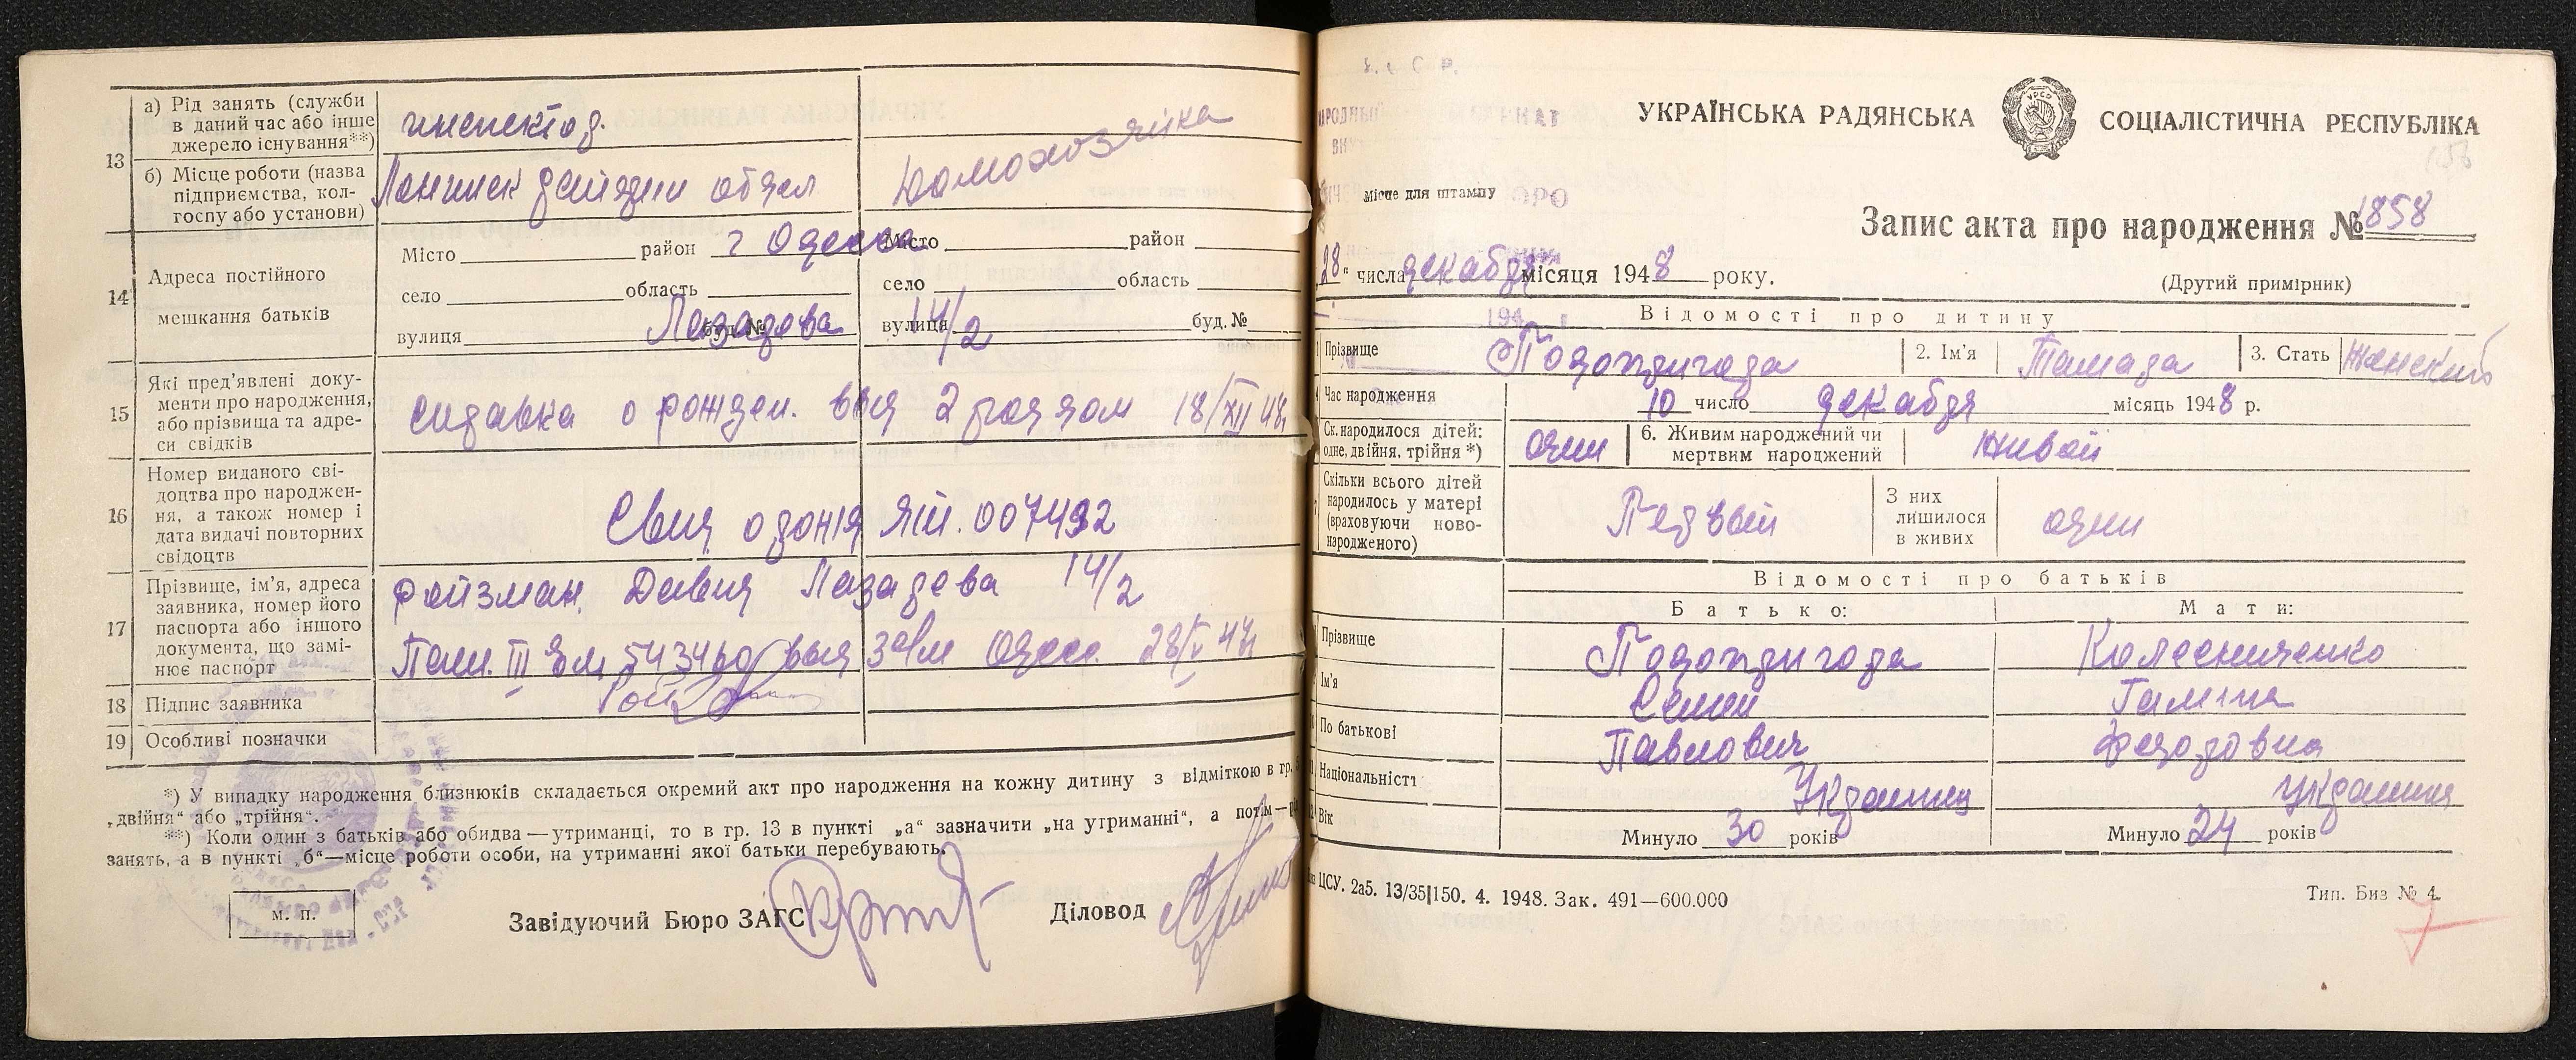 13
а) Рід занять (служби
в даний час або інше
джерело існування**)
инспектор.
б) Місце роботи (назва
підприємства, кол-
госпу або установи)
домохозяйка
14
Адреса постійного
мешкання батьків
Місто район г Одесса
село область
вулиця Лазарева буд. № 14/2
Місто район
село область
вулиця буд. №
15
Які пред'явлені доку-
менти про народження,
або прізвища та адре-
си свідків
справка о рожден. выд 2 роддом 18/XII 48.
16
Номер виданого сві-
доцтва про народжен-
ня, а також номер і
дата видачі повторних
свідоцтв
007492
17
Прізвище, ім'я, адреса
заявника, номер його
паспорта або іншого
документа, що замі-
нює паспорт
Ройзман Давид Лазарева 14/2
18 Підпис заявника
19 Особливі позначки
*) У випадку народження близнюків складається окремий акт про народження на кожну дитину з відміткою в гр.
„двійня“ або „трійня“.
**) Коли один з батьків або обидва—утриманці, то в гр. 13 в пункті „а“ зазначити „на утриманні“, а потім—
занять, а в пункті „б“—місце роботи особи, на утриманні якої батьки перебувають.
м. п.
Завідуючий Бюро ЗАГС
Діловод
УКРАЇНСЬКА РАДЯНСЬКА СОЦІАЛІСТИЧНА РЕСПУБЛІКА
Місце для штампу
Запис акта про народження № 1858
„28“ числа декабря місяця 1948 року.
(Другий примірник)
Відомості про дитину
Прізвище Подопригора 2. Ім'я Тамара 3. Стать Женский
Час народження 10 число декабря місяць 1948 р.
Ск. народилося дітей:
одне, двійня, трійня *)
один
6. Живим народжений чи
мертвим народжений
живой
Скільки всього дітей
народилось у матері
(враховуючи ново-
народженого)
Первый
З них
лишилося
в живих
один
Відомості про батьків
Батько: Мати:
Прізвище Подопригора Колесниченко
Ім'я Семен Галина
По батькові Павлович Федоровна
Національність Украинец Украинка
Вік Минуло 30 років Минуло 24 років
ЦСУ. 2а5. 13/35|150. 4. 1948. Зак. 491—600.000
Тип. Биз № 4.
7